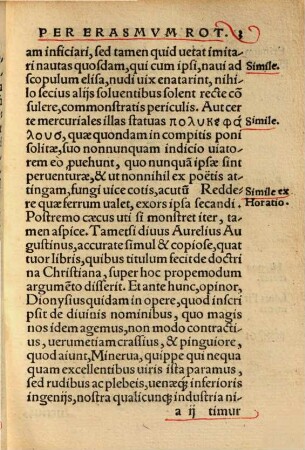 PER ERASMVM ROT. 3
am inficiari, sed tamen quid uetat imita
ri nautas quosdam, qui cum ipsi, naui ad
scopulum elisa, nudi uix enatarint, nihi
lo secius alijs soluentibus solent recte cõ
sulere, commonstratis periculis. Aut cer
te mercuriales illas statuas πολυκεφα
λουσ, quæ quondam in compitis poni
solitæ, suo nonnunquam indicio uiato-
rem eò ꝓuehunt, quo nunquã ipsæ sint
peruenturæ, & ut nonnihil ex poëtis at-
tingam, fungi uice cotis, acutũ Redde-
re quæ ferrum ualet, exors ipsa secandi.
Postremo cæcus uti si monstret iter, ta-
men aspice. Tametsi diuus Aurelius Au
gustinus, accurate simul & copiose, quat
tuor libris, quibus titulum fecit de doctri
na Christiana, super hoc propemodum
argumẽto disserit. Et ante hunc, opinor,
Dionysius quidam in opere, quod inscri
psit de diuinis nominibus, quo magis
nos idem agemus, non modo contracti-
us, uerumetiam crassius, & pinguiore,
quod aiunt, Minerua, quippe qui nequa
quam excellentibus uiris ista paramus,
sed rudibus ac plebeis, uenæq; inferioris
ingenijs, nostra qualicunq; industria ni-
a ij timur
Simile.
Simile.
Simile ex
Horatio.